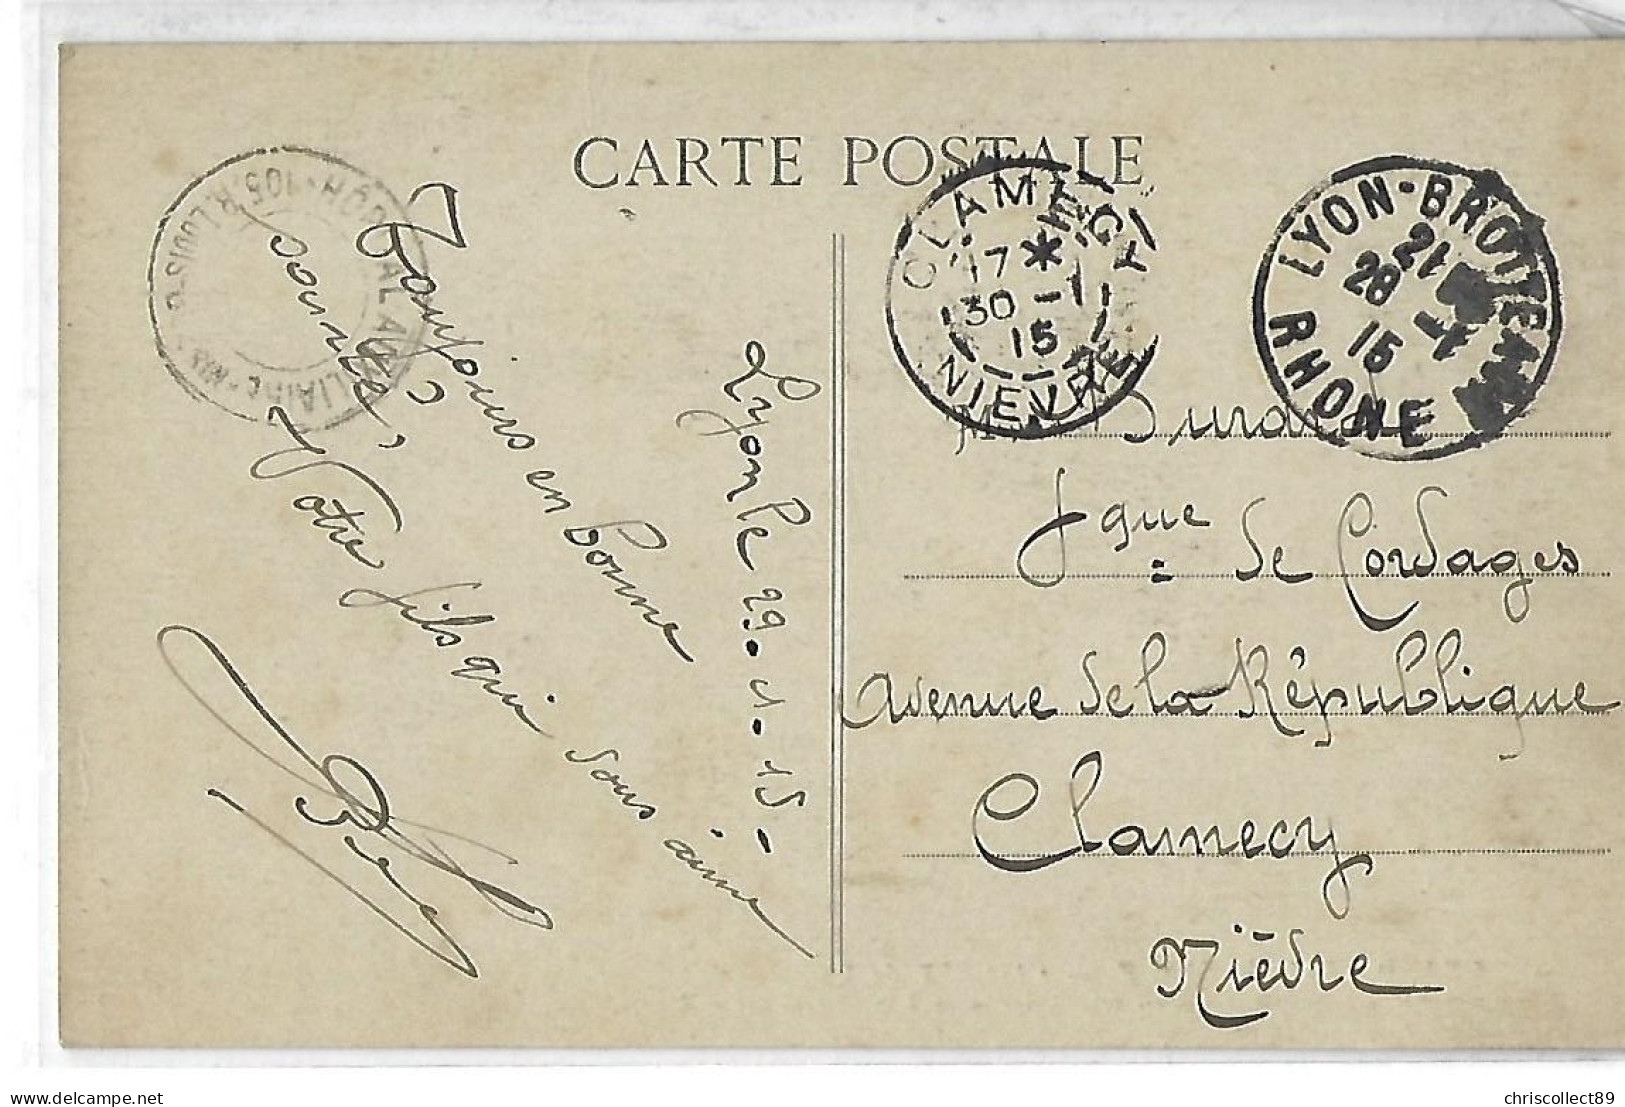 CARTE POSTALE
HÔPITAL AUXILIAIRE
105, R. LOUIS
CLAMECY
17 *
30 - 1
15
NIEVRE
LYON-BROTTEAUX
21
28 - 1
15
RHONE
Lyon le 29.1.15-
Toujours en bonne
santé,
Votre fils qui vous aime
M Durand
fque de Cordages
avenue de la République
Clamecy
Nièvre
delcampe.net
chriscollect89